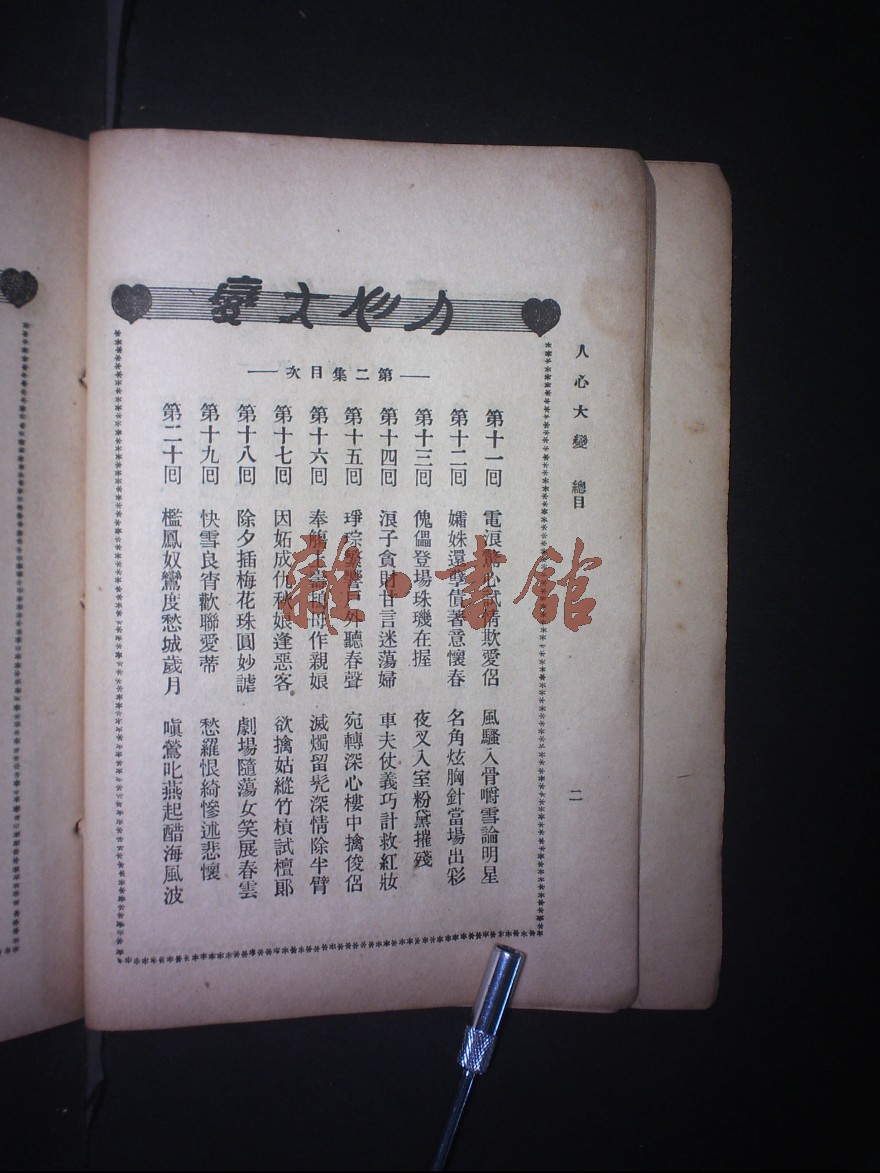 人心大變 總目
二
人心大變
—第二集目次—
第十一回 電浪驚心試情欺愛侶 風騷入骨嚼雪論明星
第十二回 孀姝還孽債著意懷春 名角炫胸針當場出彩
第十三回 傀儡登場珠璣在握 夜叉入室粉黛摧殘
第十四回 浪子貪財甘言迷蕩婦 車夫仗義巧計救紅妝
第十五回 琤琮繁響戶外聽春聲 宛轉深心樓中擒俊侶
第十六回 奉觴上壽 母作親娘 滅燭留髠深情除半臂
第十七回 因妬成仇秋娘逢惡客 欲擒姑縱竹槓試檀郞
第十八回 除夕插梅花珠圓妙謔 劇場隨蕩女笑展春雲
第十九回 快雪良宵歡聯愛蒂 愁羅恨綺慘述悲懷
第二十回 檻鳳奴鸞度愁城歲月 嗔鶯叱燕起醋海風波
雜·書館